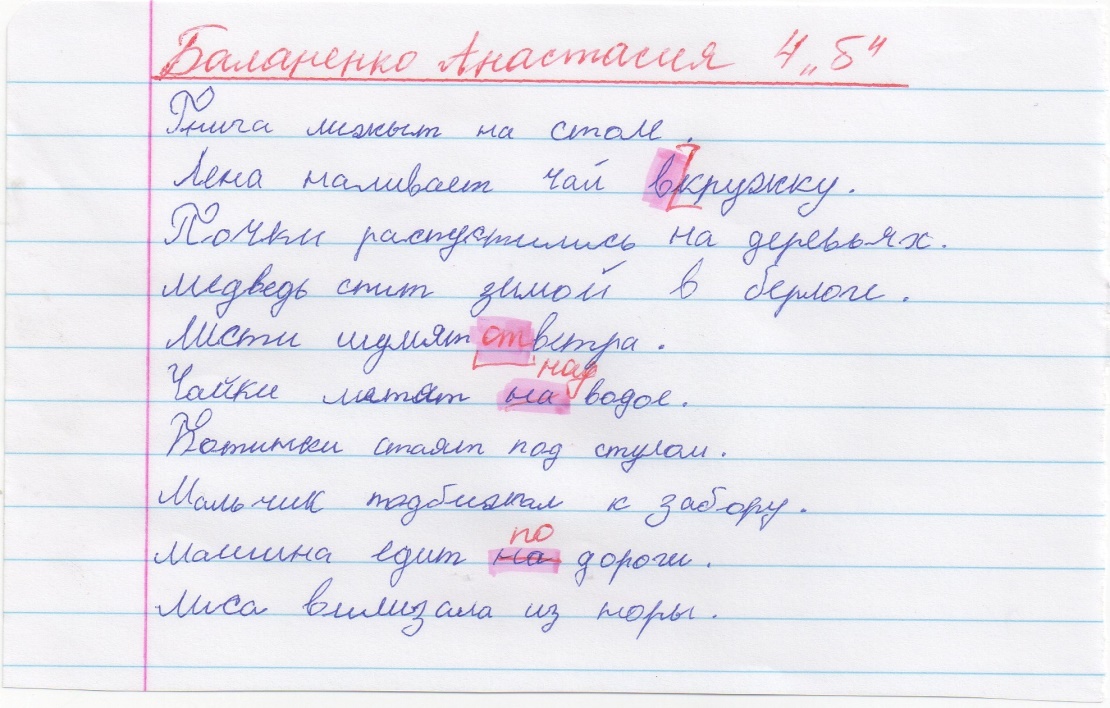 Баланенко Анастасия 4 „Б“
Гнига лижыт на стом.
Лена наливает чай вкружку.
Почки распустились на деревьях.
медведь спит зимой в берлоге.
Листи шумят от ветра.
над
Чайки летят на водое.
Ботинки стаят под стулом.
Мальчик подбижал к забору.
по
машина едит на дороги.
лиса вилизала из норы.